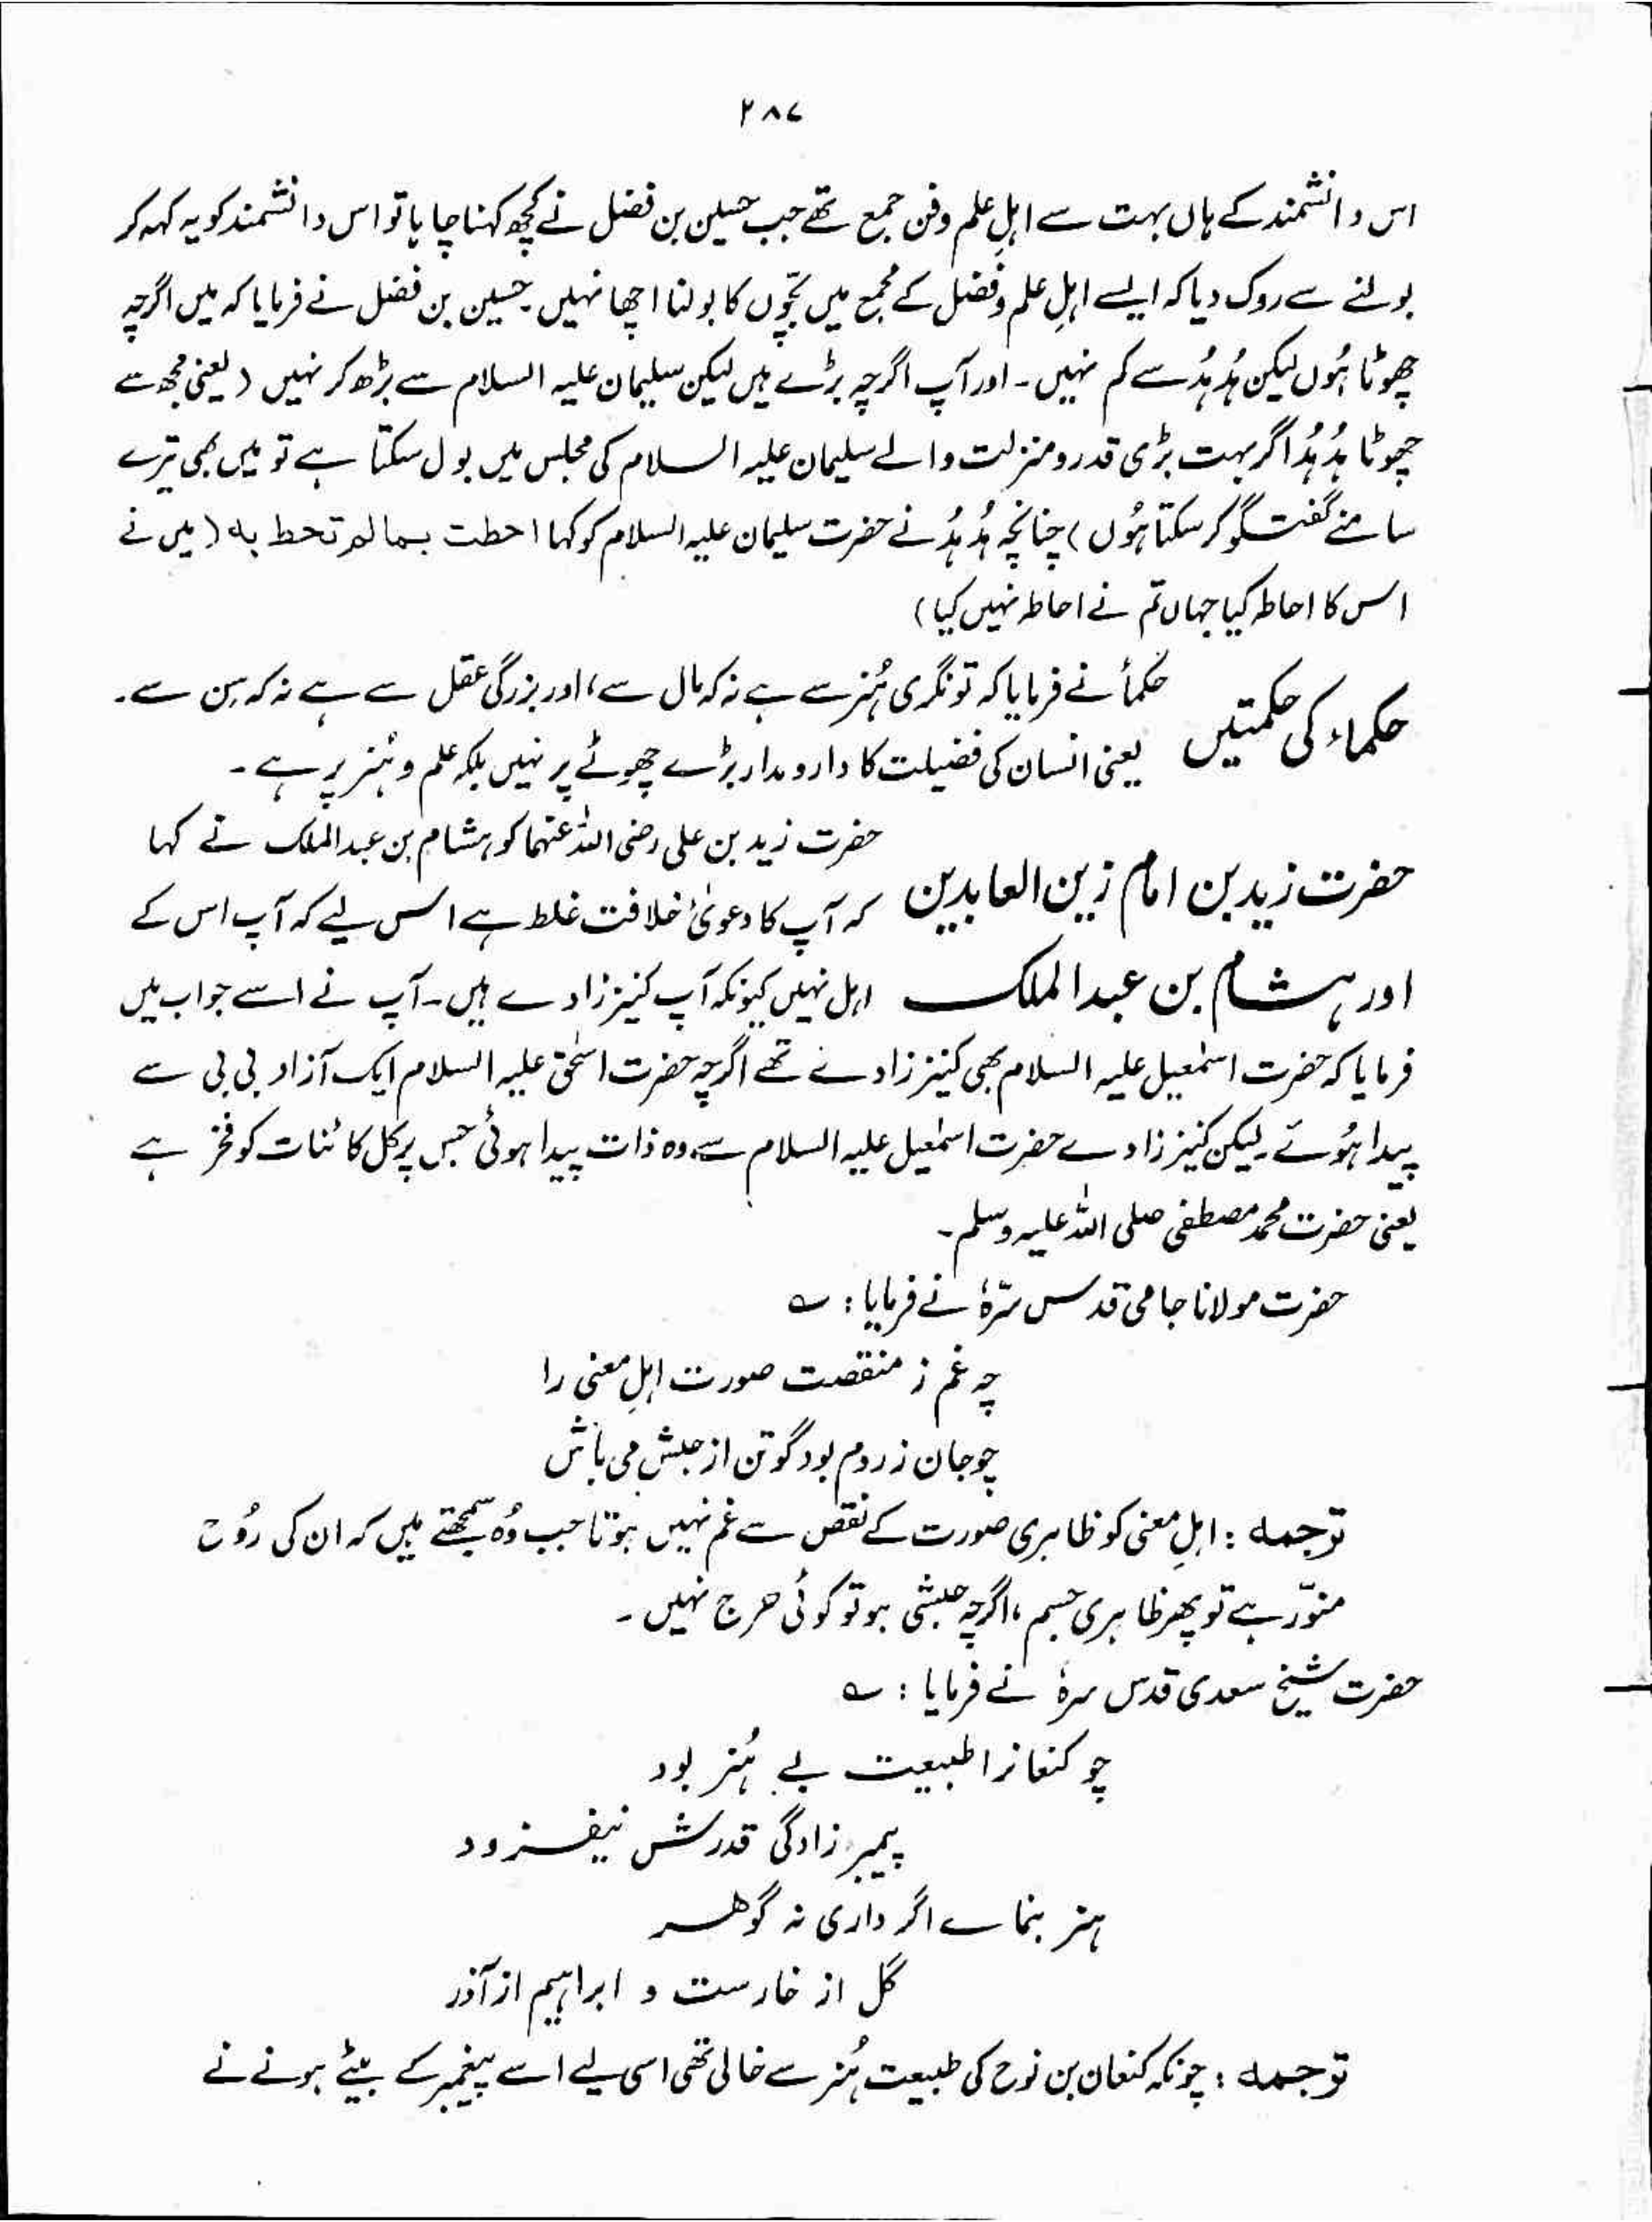 ۲۸۷
اس دانشمند کے ہاں بہت سے اہلِ علم و فن جمع تھے جب حسین بن فضل نے کچھ کہنا چاہا تو اس دانشمند کو یہ کہہ کر
بولنے سے روک دیا کہ ایسے اہلِ علم و فضل کے مجمع میں بچّوں کا بولنا اچھا نہیں۔ حسین بن فضل نے فرمایا کہ میں اگرچہ
چھوٹا ہُوں لیکن ہُدہُد سے کم نہیں۔ اور آپ اگرچہ بڑے ہیں لیکن سلیمان علیہ السلام سے بڑھ کر نہیں (یعنی مجھ سے
چھوٹا ہُدہُد اگر بہت بڑی قدر و منزلت والے سلیمان علیہ السلام کی مجلس میں بول سکتا ہے تو میں بھی تیرے
سامنے گفتگو کر سکتا ہُوں) چنانچہ ہُدہُد نے حضرت سلیمان علیہ السلام کو کہا احطت بمالم تحط به (میں نے
اس کا احاطہ کیا جہاں تم نے احاطہ نہیں کیا)
حکماء کی حکمتیں حکمأ نے فرمایا کہ تونگری ہُنر سے ہے نہ کہ مال سے، اور بزرگی عقل سے ہے نہ کہ سِن سے۔
یعنی انسان کی فضیلت کا دار و مدار بڑے چھوٹے پر نہیں بلکہ علم و ہُنر پر ہے۔
حضرت زید بن امام زین العابدین حضرت زید بن علی رضی اللہ عنہما کو ہشام بن عبدالملک نے کہا
کہ آپ کا دعویٰ خلافت غلط ہے اس لیے کہ آپ اس کے
اور ہشام بن عبدالملک اہل نہیں کیونکہ آپ کنیز زادے ہیں۔ آپ نے اسے جواب میں
فرمایا کہ حضرت اسمٰعیل علیہ السلام بھی کنیز زادے تھے اگرچہ حضرت اسحٰق علیہ السلام ایک آزاد بی بی سے
پیدا ہُوئے۔ لیکن کنیز زادے حضرت اسمٰعیل علیہ السلام سے وہ ذات پیدا ہوئی جس پر کل کائنات کو فخر ہے
یعنی حضرت محمد مصطفی صلی اللہ علیہ وسلم۔
حضرت مولانا جامی قدس سرّہٗ نے فرمایا : ؎
چہ غم ز منقصت صورت اہلِ معنی را
چو جان ز روم بود گو تن از حبش می باش
ترجمہ : اہلِ معنی کو ظاہری صورت کے نقص سے غم نہیں ہوتا جب وُہ سمجھتے ہیں کہ ان کی رُوح
منوّر ہے تو پھر ظاہری جسم، اگرچہ حبشی ہو تو کوئی حرج نہیں۔
حضرت شیخ سعدی قدس سرہٗ نے فرمایا : ؎
چو کنعانرا طبیعت بے ہُنر بود
پیمبر زادگی قدرش نیفزود
ہنر بنمائے اگر داری نہ گوھر
گل از خارست و ابراہیم از آذر
ترجمہ : چونکہ کنعان بن نوح کی طبیعت ہُنر سے خالی تھی اسی لیے اسے پیغمبر کے بیٹے ہونے نے